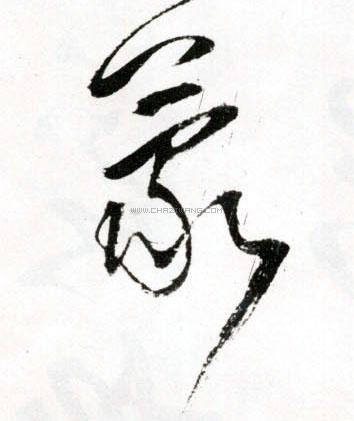 蒙
WWW.CHAZIWANG.COM